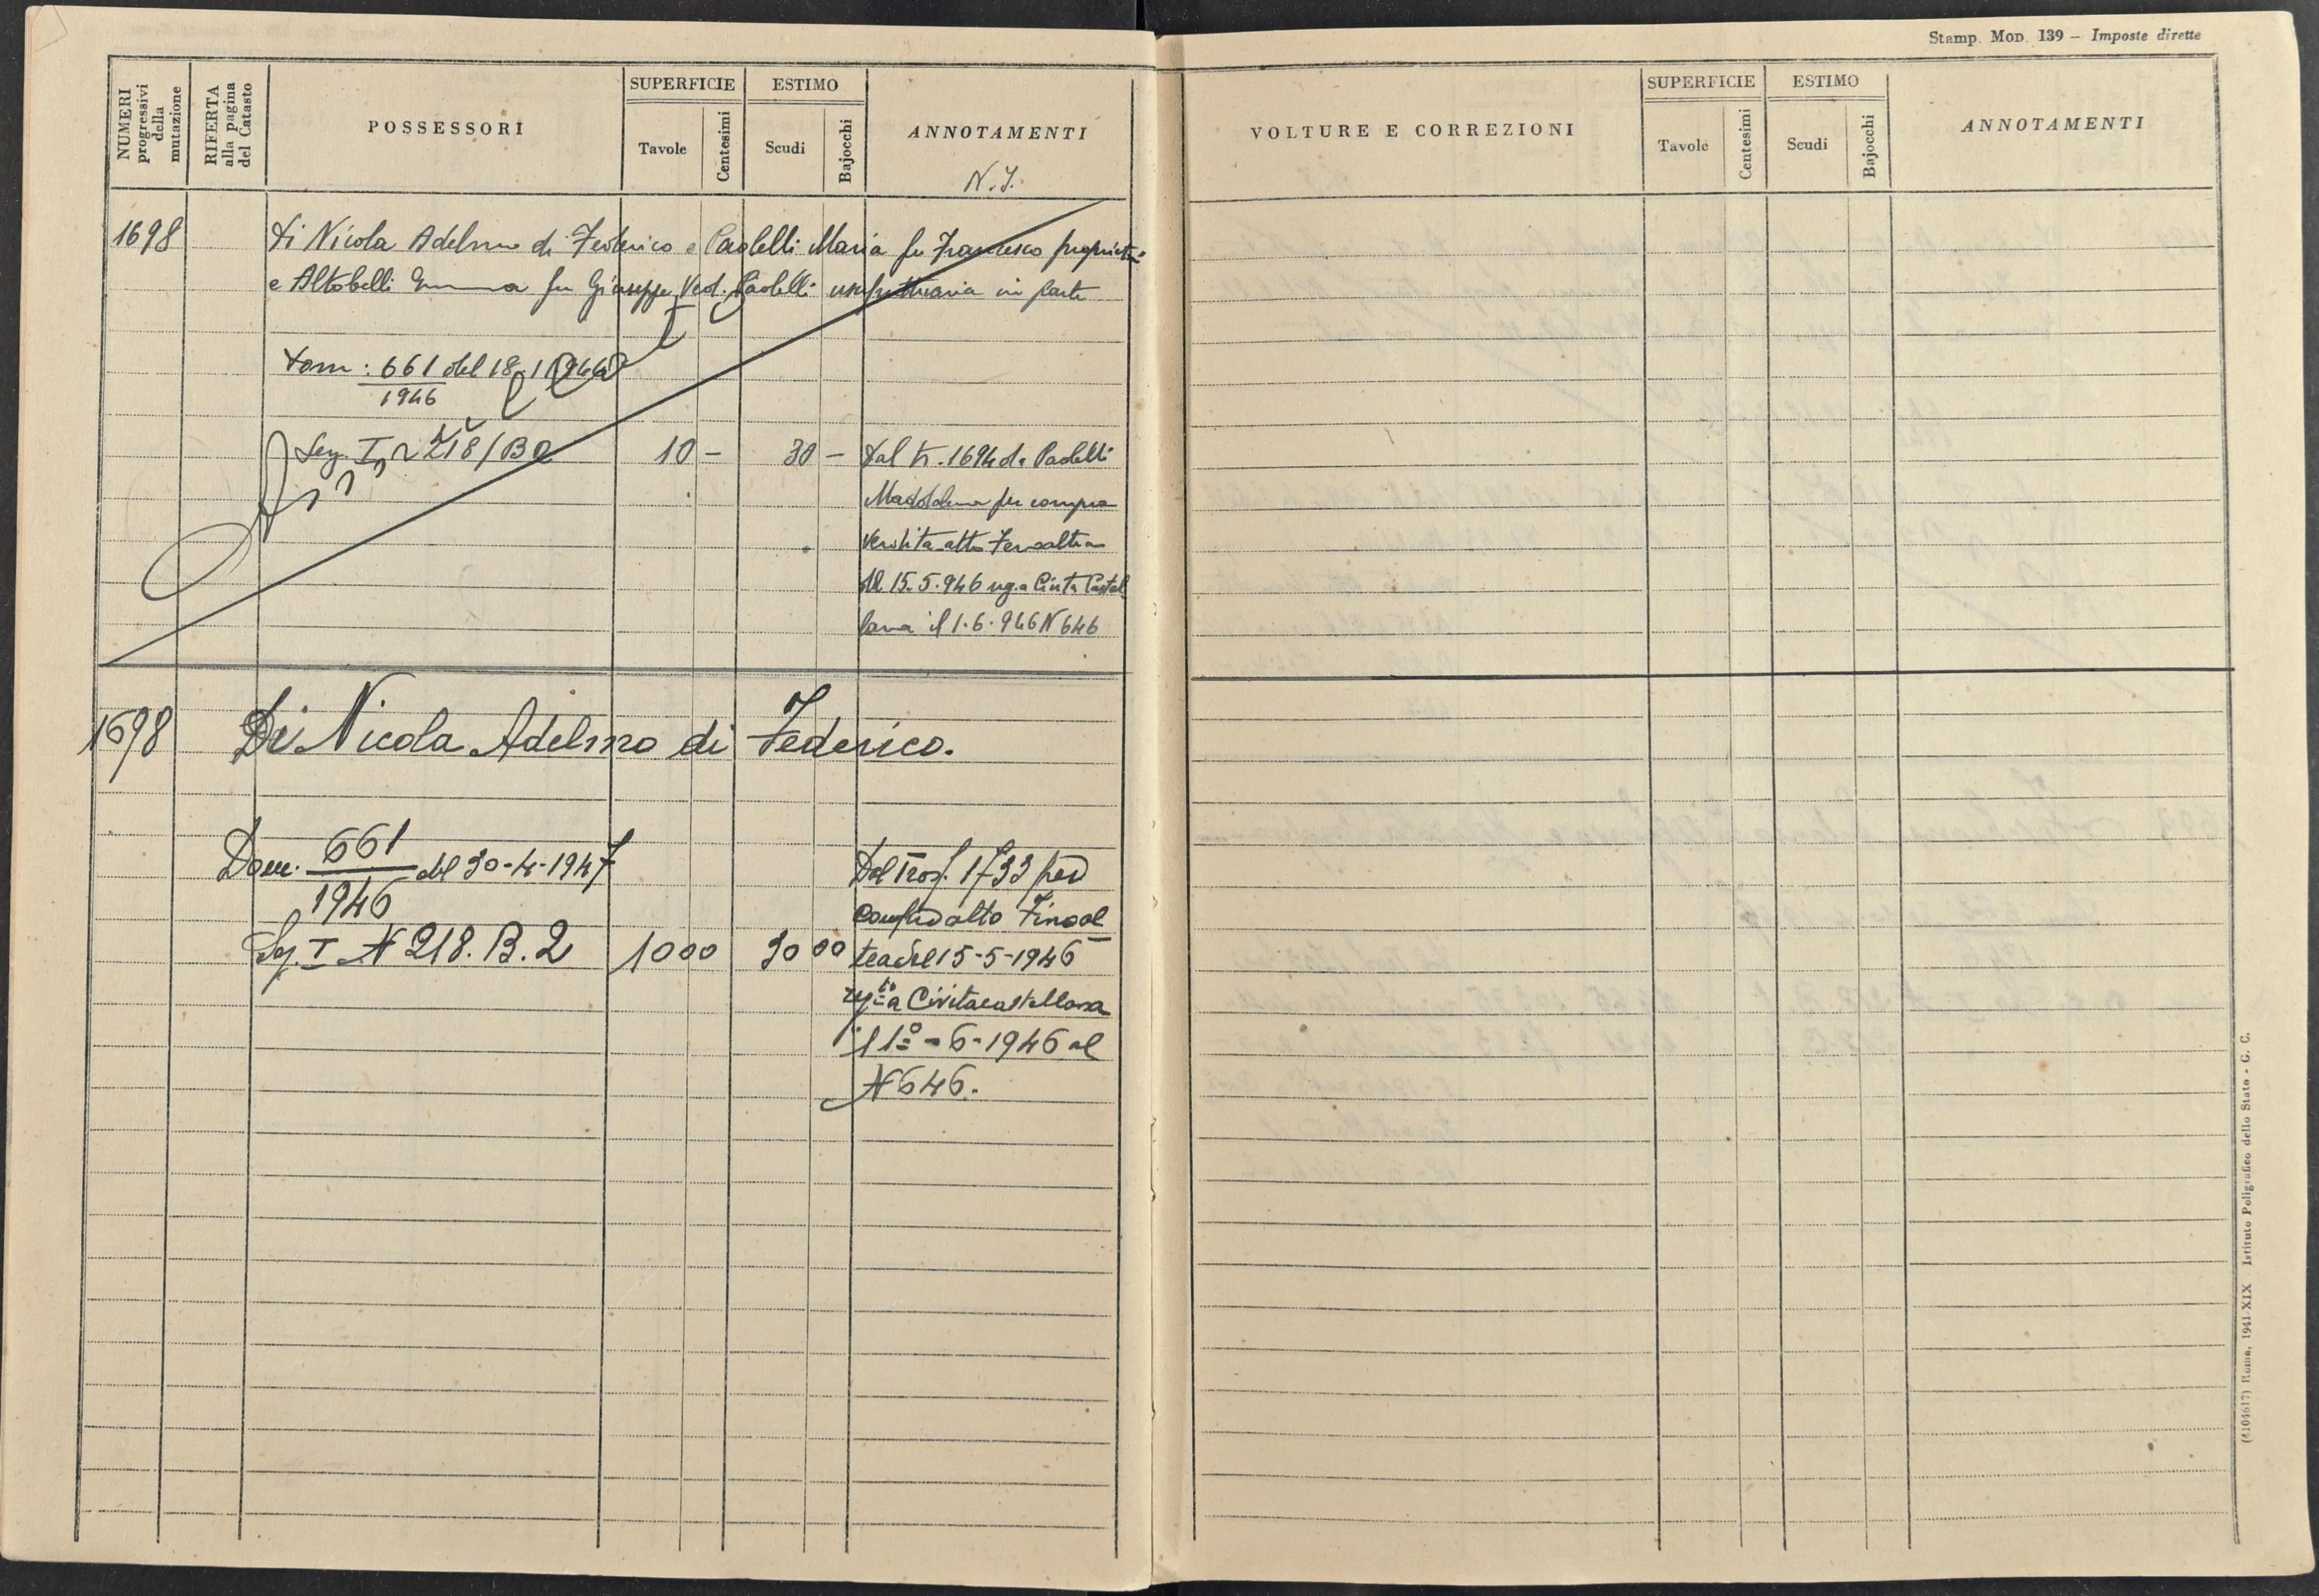 Stamp. Mod. 139 – Imposte dirette
NUMERI progressivi della mutazione
RIFERTA alla pagina del Catasto
POSSESSORI
SUPERFICIE
Tavole
Centesimi
ESTIMO
Scudi
Bajocchi
ANNOTAMENTI
VOLTURE E CORREZIONI
SUPERFICIE
Tavole
Centesimi
ESTIMO
Scudi
Bajocchi
ANNOTAMENTI
1698
Di Nicola Adelmo di Federico e Paolelli Maria fu Francesco
e Altobelli Emma fu Giuseppe Ved. Paolelli usufruttuaria in parte
Dom: 661 del 18
1946
Sez. I 218/B2
10 –
30 –
Dal tr. 1694 da Paolelli
Maddalena per compra
vendita atto
del 15.5.946 reg. a Civita Castel
lana il 1.6.946 N 646
1698
Di Nicola Adelmo di Federico.
Dom. 661 del 30-4-1947
1946
Sez. I N 218.B.2
10 00
30 00
Dal Trasf. 1733 per
atto
del 15-5-1946
a Civitacastellana
il 1º-6-1946 al
N 646.
(4104617) Roma, 1941-XIX Istituto Poligrafico dello Stato - G. C.